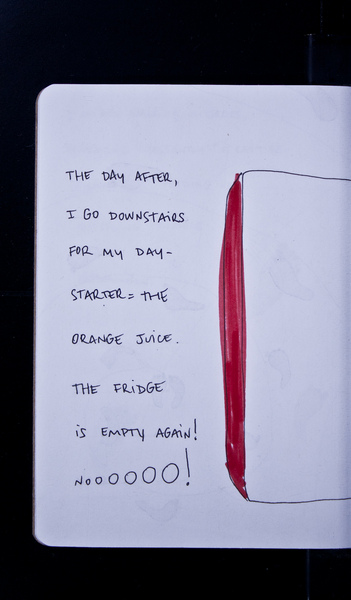 THE DAY AFTER,
I GO DOWNSTAIRS
FOR MY DAY-
STARTER = THE
ORANGE JUICE.
THE FRIDGE
iS EMPTY AGAiN!
NOOOOOO!